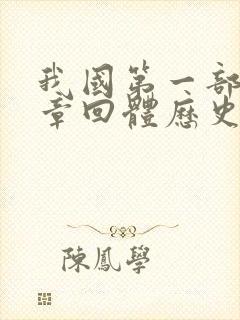 我國第一部
章回體歷史
陳鳳學